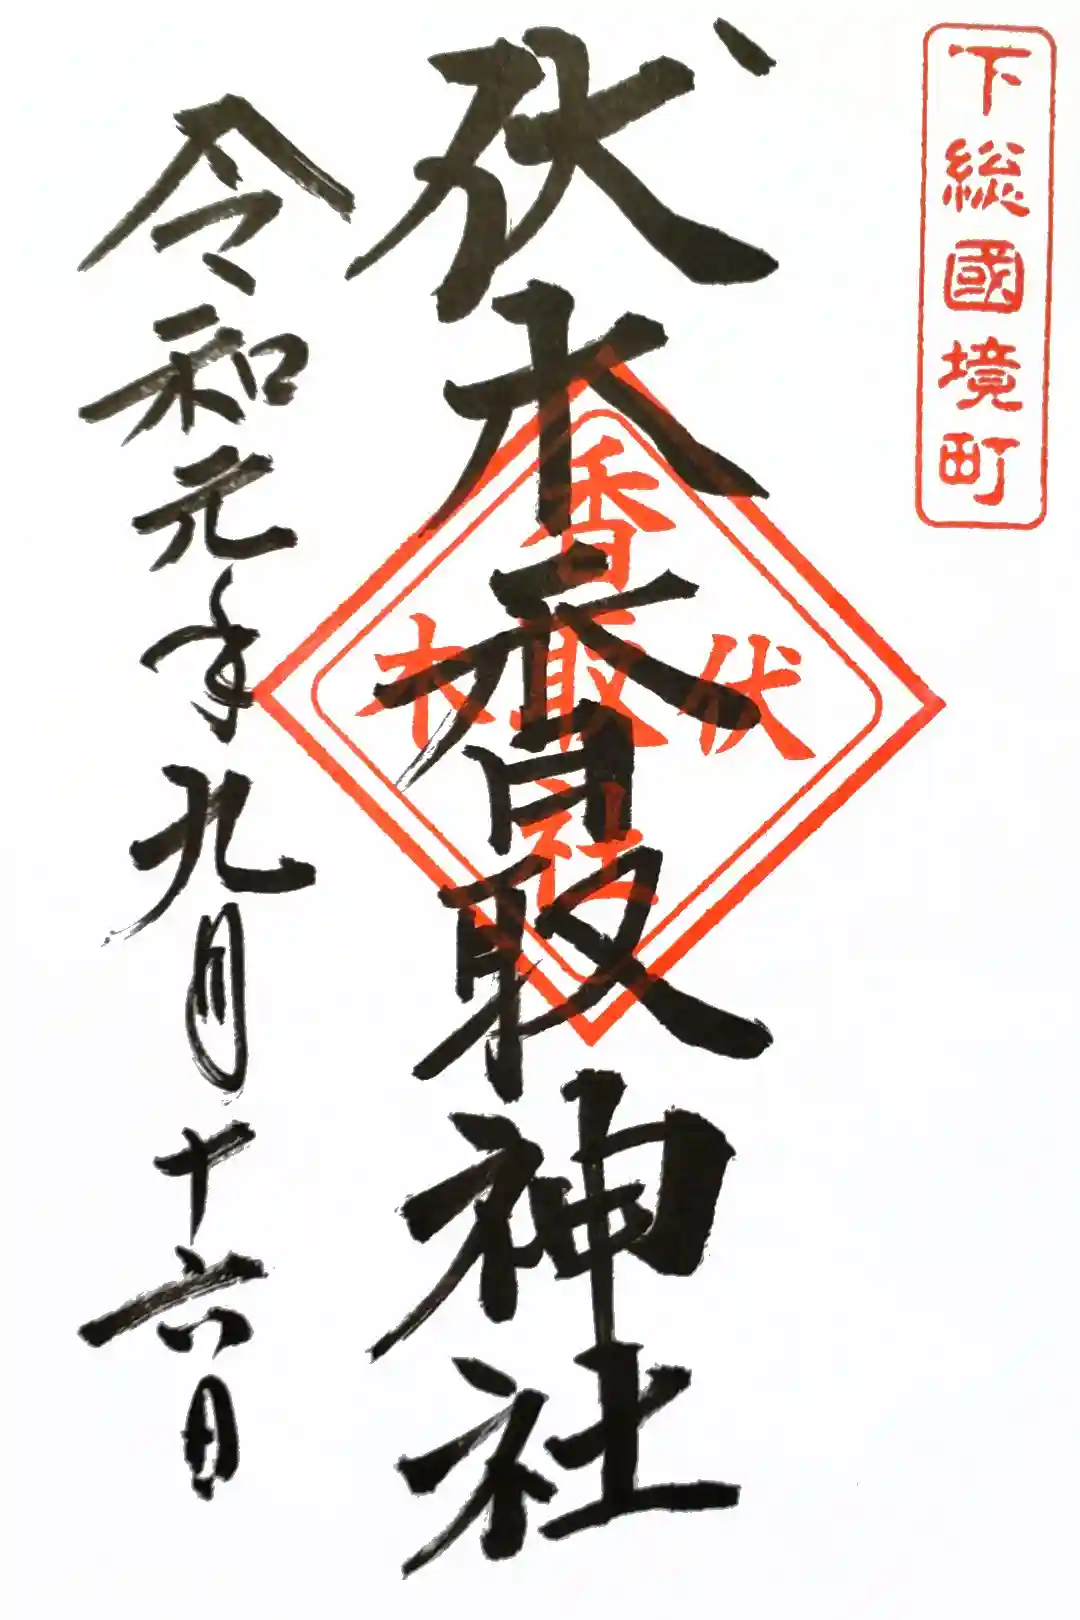 下総國境町
伏木香取神社
伏木
香取社
令和元年九月十六日